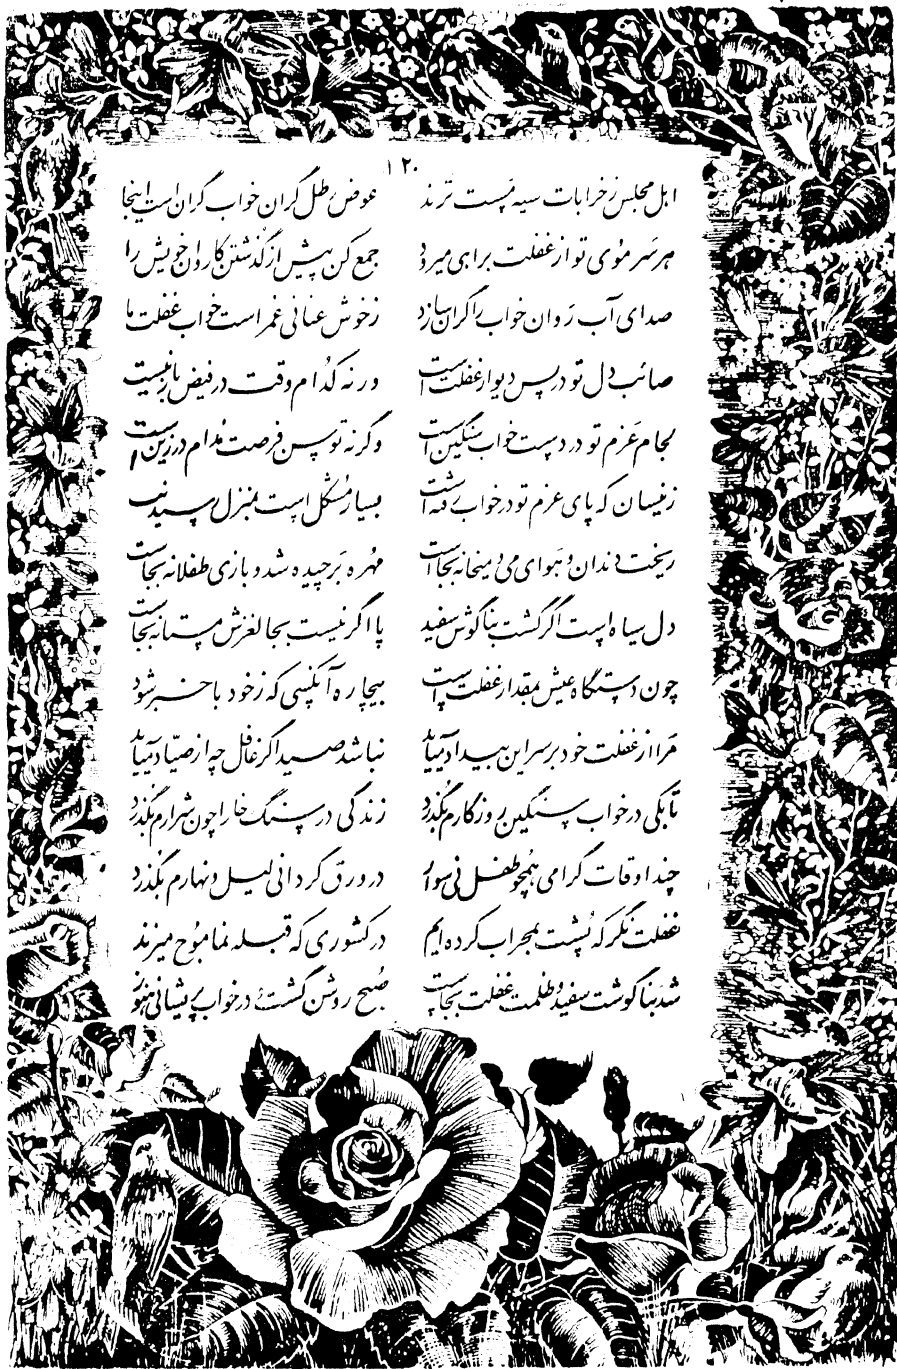 ۱۲۰
اهل مجلس ز خرابات سیه مست ترند عوض رطل گران خواب گران است اینجا
هر سر موی تو از غفلت براهی میرود جمع کن پیش از گذشتن کاروان خویش را
صدای آب روان خواب را گران سازد ز خوش عنانی عمر است خواب غفلت ما
صائب دل تو در پس دیوار غفلت است ورنه کدام وقت در فیض باز نیست
لجام عزم تو در دست خواب سنگین است وگرنه توسن فرصت مدام در زین است
زینسان که پای عزم تو در خواب رفته است بسیار مشکل است بمنزل رسیدنت
ریخت دندان و هوای می و میخانه بجاست مهره برچیده شد و بازی طفلانه بجاست
دل سیاه است اگر گشت بناگوش سفید پا اگر نیست بجا لغزش مستانه بجاست
چون دستگاه عیش بمقدار غفلت است بیچاره آنکسی که ز خود باخبر شود
مرا از غفلت خود بر سر این بیداد میآید نباشد صید اگر غافل چه از صیاد میآید
تابکی در خواب سنگین روزگارم بگذرد زندگی در سنگ خارا چون شرارم بگذرد
چند اوقات گرامی همچو طفل نی سوار در ورق گردانی لیل و نهارم بگذرد
غفلت نگر که پشت بمحراب کرده ایم در کشوری که قبله نما موج میزند
شد بناگوشت سفید و ظلمت غفلت بجاست صبح روشن گشت و در خواب پریشانی هنوز